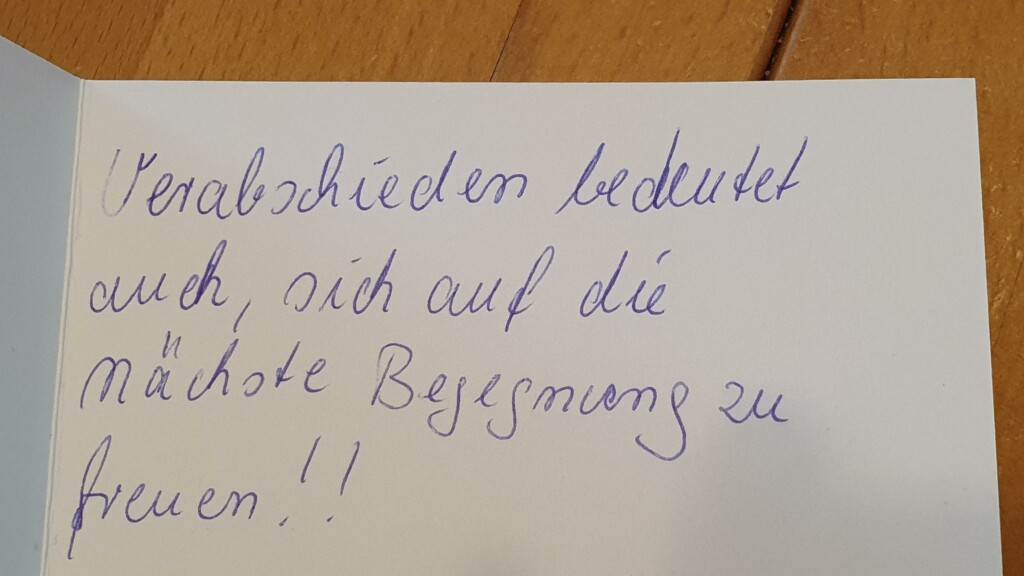 Verabschieden bedeutet
auch, sich auf die
nächste Begegnung zu
freuen!!